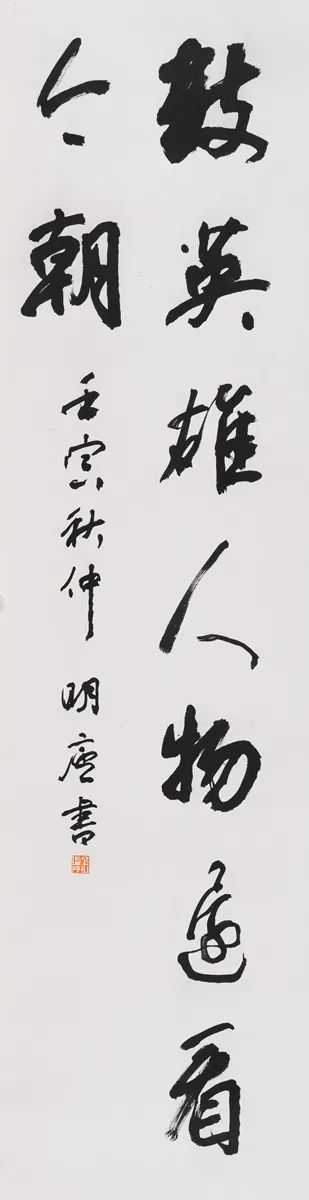 数英雄人物還看
今朝
壬寅秋仲 明 書